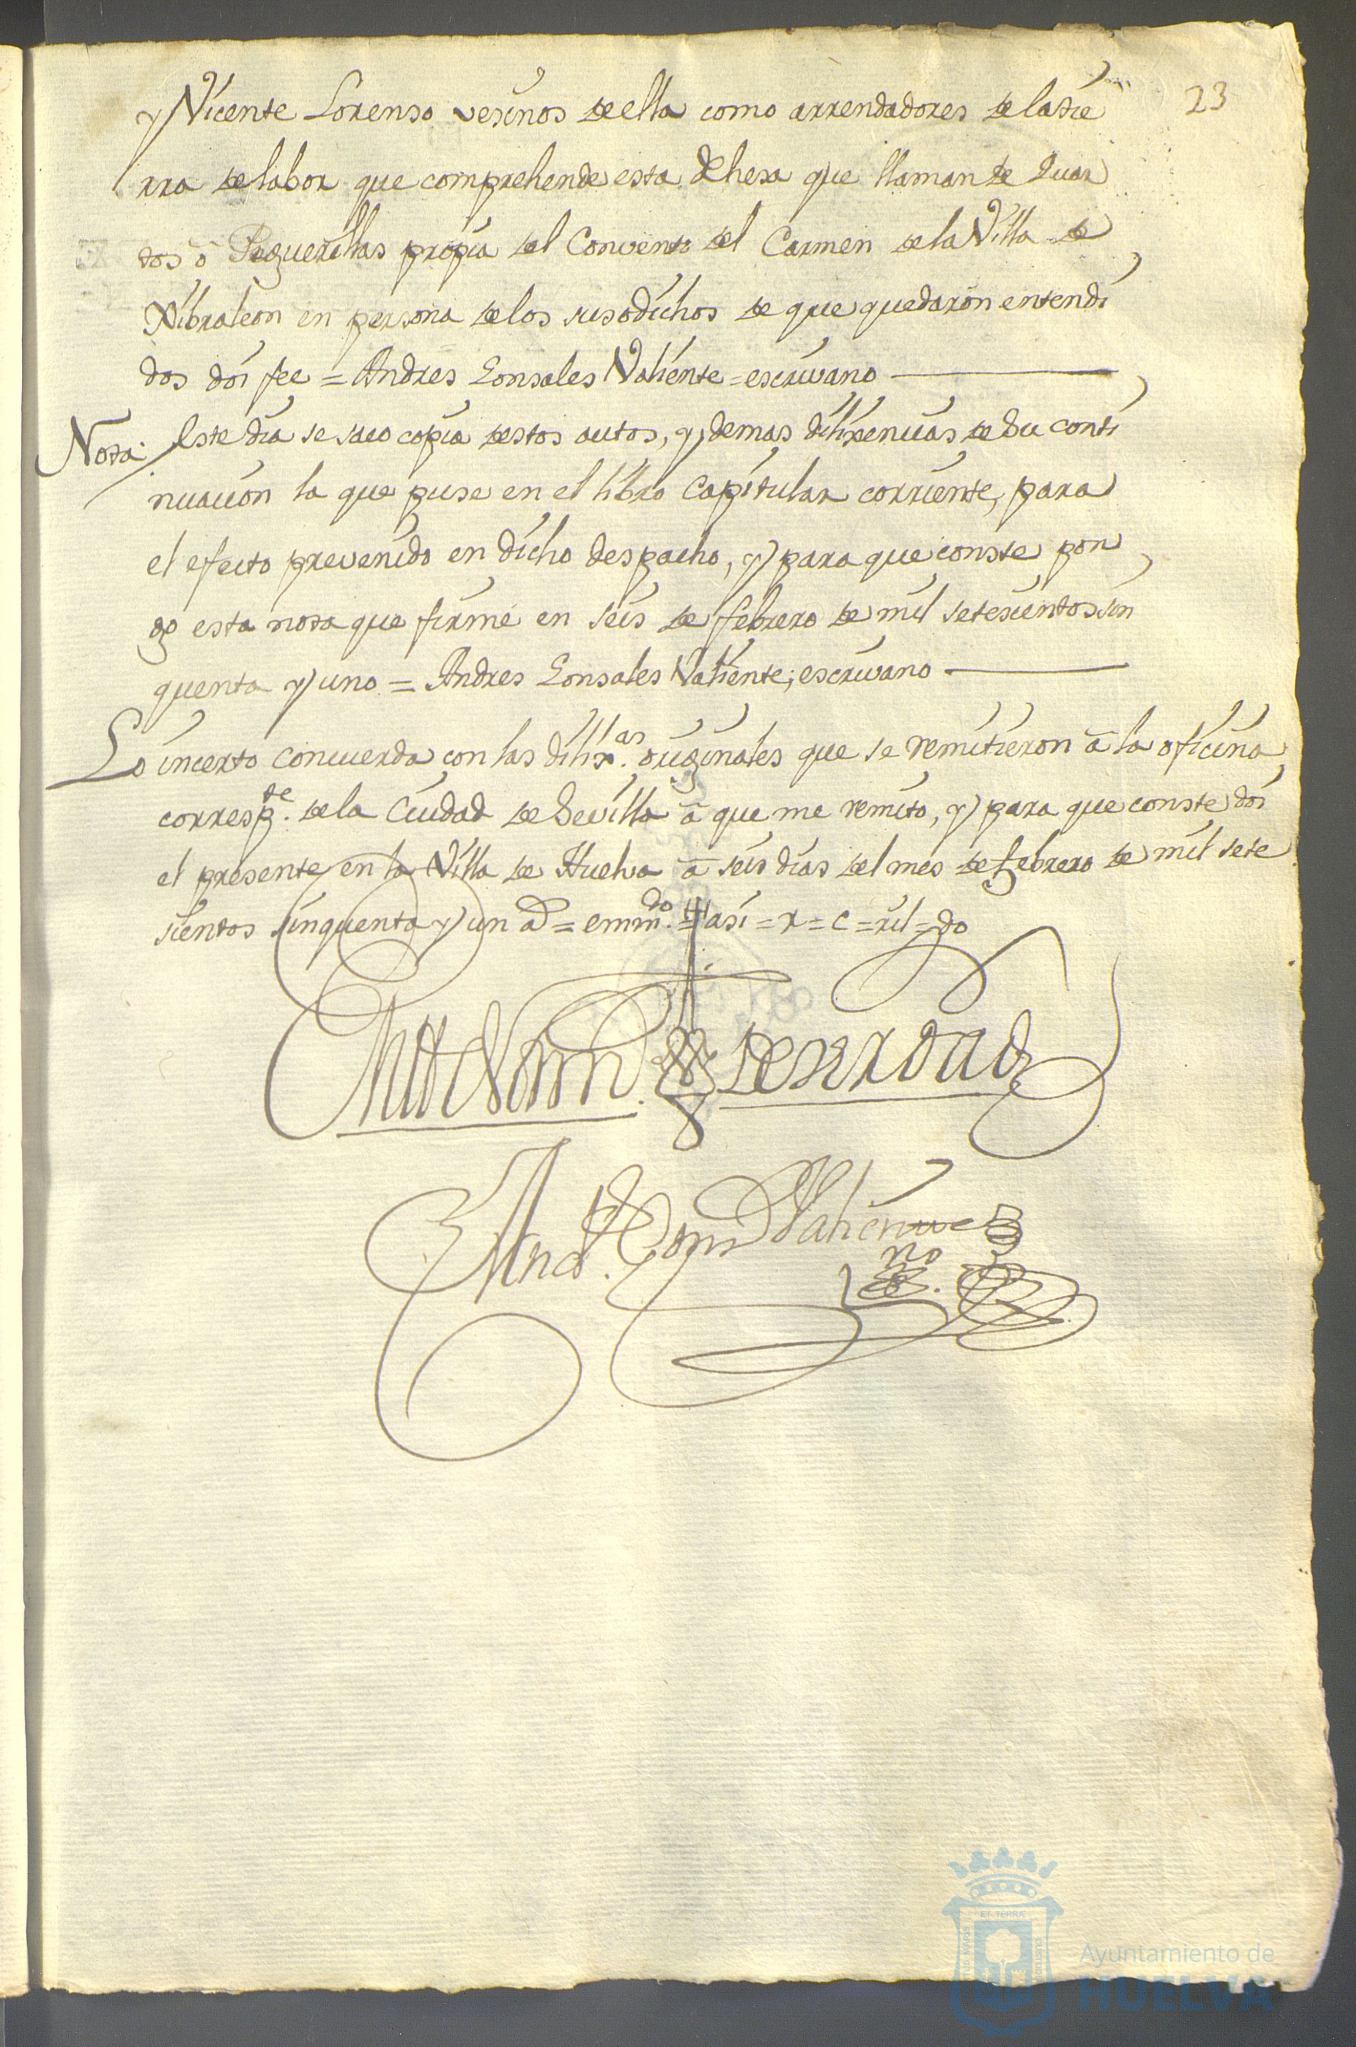 23
y Vicente Lorenso vesinos de ella como arrendadores de la tie
rra de labor que comprehende esta dehesa que llaman de Juan
dos ô Peguerillas propia del Convento del Carmen de la Villa de
Xibraleon en persona de los susodichos de que quedaron entendi
dos doi fee = Andres Gonsales Valiente = escrivano
Nota: Este dia se saco copia destos autos, y demas dilixencias de su conti
nuacion la que puse en el libro Capitular corriente, para
el efecto prevenido en dicho despacho, y para que conste pon
go esta nota que firmé en seis de febrero de mil setesientos sin
quenta y uno = Andres Gonsales Valiente, escrivano
Lo incerto concuerda con las dilix.as originales que se remitieron â la oficina
corresp.te de la Ciudad de Sevilla â que me remito, y para que conste doi
el presente en la Villa de Huelva â seis dias del mes de febrero de mil sete
sientos sinquenta y un a.s = emm.do = asi = x = c = xil = do
En testim.o de verdad
And.s Gons Valiente
es.no
Ayuntamiento de
HUELVA